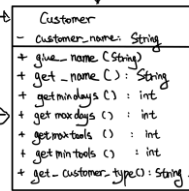 Customer
- customer_name: String
+ give_name (String)
+ get_name (): String
+ getmindays () : int
+ get maxdays () : int
+ getmaxtools () : int
+ get mintools () : int
+ get_customer_type(): String